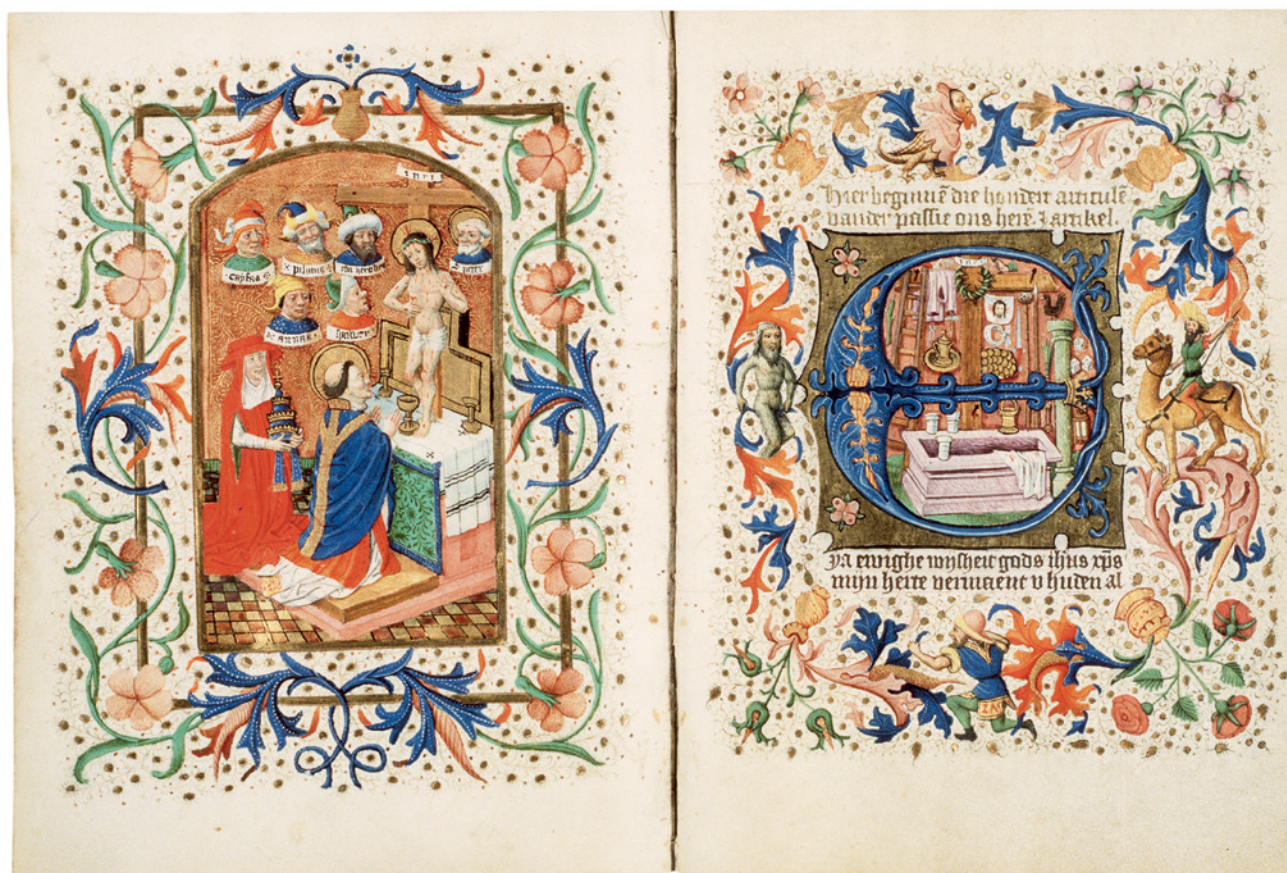 INRI
cayphas
pilatus
herodes
S peter
ANNAS
INRI
Hier beginnē die hondert articulē
vander passie ons herē. I artikel.
E
ya ewighe wijsheit gods ihūs xp̄s
mijn herte vermaent v huden al